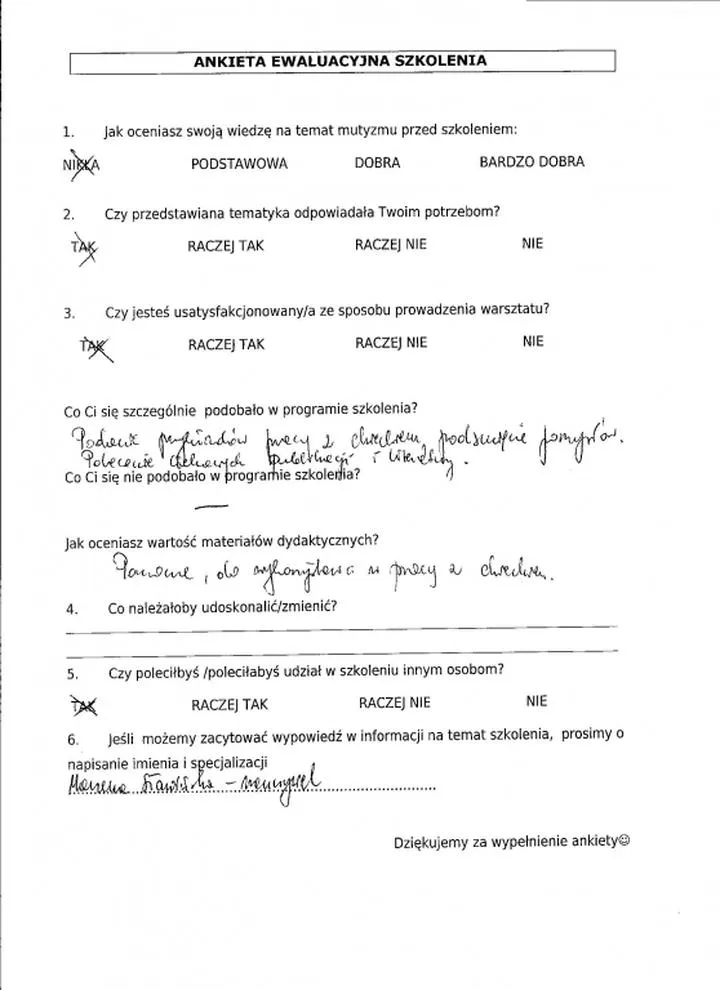 ANKIETA EWALUACYJNA SZKOLENIA
1. Jak oceniasz swoją wiedzę na temat mutyzmu przed szkoleniem:
NIKŁA PODSTAWOWA DOBRA BARDZO DOBRA
2. Czy przedstawiana tematyka odpowiadała Twoim potrzebom?
TAK RACZEJ TAK RACZEJ NIE NIE
3. Czy jesteś usatysfakcjonowany/a ze sposobu prowadzenia warsztatu?
TAK RACZEJ TAK RACZEJ NIE NIE
Co Ci się szczególnie podobało w programie szkolenia?
Podanie przykładów pracy z dzieckiem, podsunięcie pomysłów.
Polecenie ciekawych publikacji i literatury.
Co Ci się nie podobało w programie szkolenia?
—
Jak oceniasz wartość materiałów dydaktycznych?
Pomocne, do wykorzystania w pracy z dzieckiem.
4. Co należałoby udoskonalić/zmienić?
5. Czy poleciłbyś /poleciłabyś udział w szkoleniu innym osobom?
TAK RACZEJ TAK RACZEJ NIE NIE
6. Jeśli możemy zacytować wypowiedź w informacji na temat szkolenia, prosimy o
napisanie imienia i specjalizacji
– nauczyciel
Dziękujemy za wypełnienie ankiety☺